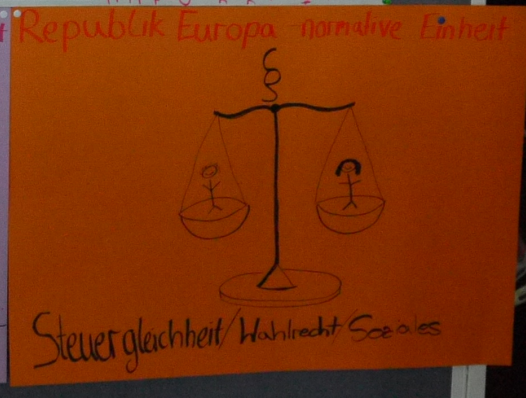 Republik Europa normative Einheit
§
Steuergleichheit/Wahlrecht/Soziales